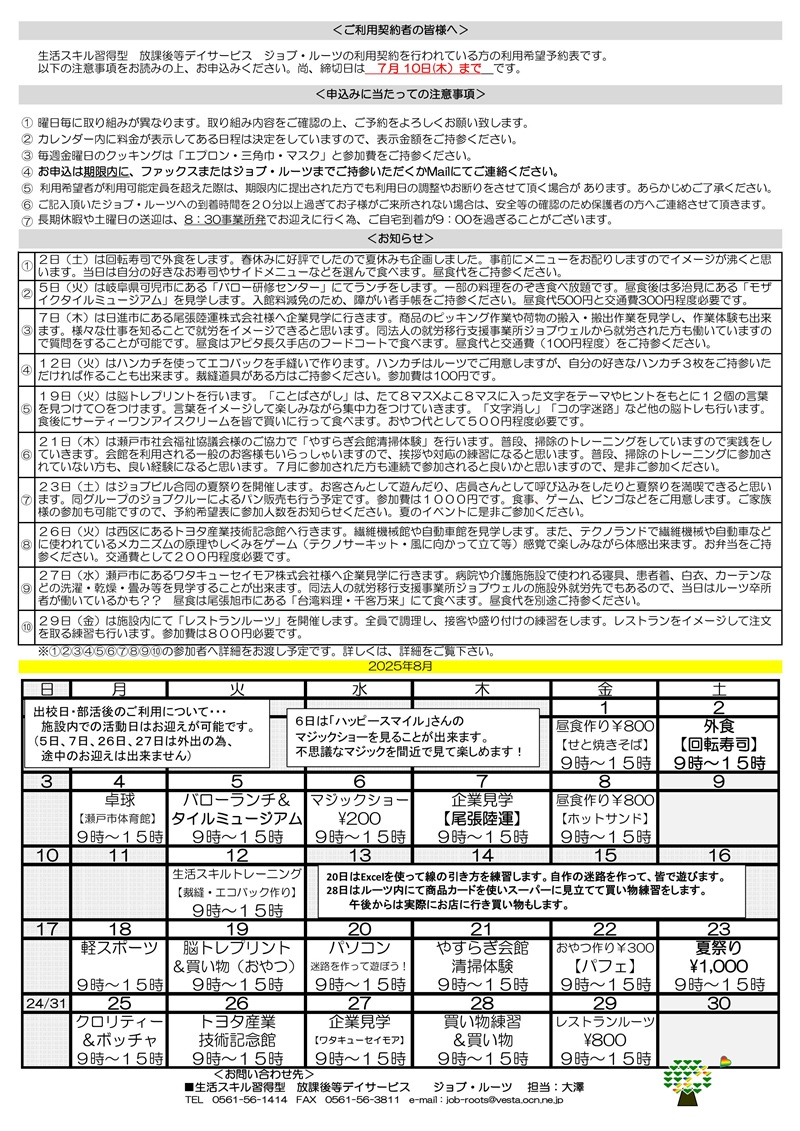 ＜ご利用契約者の皆様へ＞
生活スキル習得型　放課後等デイサービス　ジョブ・ルーツの利用契約を行われている方の利用希望予約表です。
以下の注意事項をお読みの上、お申込みください。尚、締切日は　７月 10日(木）まで　です。
＜申込みに当たっての注意事項＞
① 曜日毎に取り組みが異なります。取り組み内容をご確認の上、ご予約をよろしくお願い致します。
② カレンダー内に料金が表示してある日程は決定をしていますので、表示金額をご持参ください。
③ 毎週金曜日のクッキングは「エプロン・三角巾・マスク」と参加費をご持参ください。
④ お申込は期限内に、ファックスまたはジョブ・ルーツまでご持参いただくかMailにてご連絡ください。
⑤ 利用希望者が利用可能定員を超えた際は、期限内に提出された方でも利用日の調整やお断りをさせて頂く場合が あります。あらかじめご了承ください。
⑥ ご記入頂いたジョブ・ルーツへの到着時間を２０分以上過ぎてお子様がご来所されない場合は、安全等の確認のため保護者の方へご連絡させて頂きます。
⑦ 長期休暇や土曜日の送迎は、８：30事業所発でお迎えに行く為、ご自宅到着が９：００を過ぎることがございます。
＜お知らせ＞
① ２日（土）は回転寿司で外食をします。春休みに好評でしたので夏休みも企画しました。事前にメニューをお配りしますのでイメージが沸くと思
います。当日は自分の好きなお寿司やサイドメニューなどを選んで食べます。昼食代をご持参ください。
② ５日（火）は岐阜県可児市にある「バロー研修センター」にてランチをします。一部の料理をのぞき食べ放題です。昼食後は多治見にある「モザ
イクタイルミュージアム」を見学します。入館料減免のため、障がい者手帳をご持参ください。昼食代500円と交通費300円程度必要です。
③ ７日（木）は日進市にある尾張陸運株式会社様へ企業見学に行きます。商品のピッキング作業や荷物の搬入・搬出作業を見学し、作業体験も出来
ます。様々な仕事を知ることで就労をイメージできると思います。同法人の就労移行支援事業所ジョブウェルから就労された方も働いていますの
で質問をすることが可能です。昼食はアピタ長久手店のフードコートで食べます。昼食代と交通費（100円程度）をご持参ください。
④ １２日（火）はハンカチを使ってエコバックを手縫いで作ります。ハンカチはルーツでご用意しますが、自分の好きなハンカチ３枚をご持参いた
だければ作ることも出来ます。裁縫道具がある方はご持参ください。参加費は100円です。
⑤ １９日（火）は脳トレプリントを行います。「ことばさがし」は、たて８マス×よこ８マスに入った文字をテーマやヒントをもとに１２個の言葉
を見つけて○をつけます。言葉をイメージして楽しみながら集中力をつけていきます。「文字消し」「コの字迷路」など他の脳トレも行います。
食後にサーティーワンアイスクリームを皆で買いに行って食べます。おやつ代として５００円程度必要です。
⑥ ２１日（木）は瀬戸市社会福祉協議会様のご協力で「やすらぎ会館清掃体験」を行います。普段、掃除のトレーニングをしていますので実践をし
ていきます。会館を利用される一般のお客様もいらっしゃいますので、挨拶や対応の練習になると思います。普段、掃除のトレーニングに参加さ
れていない方も、良い経験になると思います。７月に参加された方も連続で参加されると良いかと思いますので、是非ご参加ください。
⑦ ２３日（土）はジョブビル合同の夏祭りを開催します。お客さんとして遊んだり、店員さんとして呼び込みをしたりと夏祭りを満喫できると思い
ます。同グループのジョブクルーによるパン販売も行う予定です。参加費は１０００円です。食事、ゲーム、ビンゴなどをご用意します。ご家族
様の参加も可能ですので、予約希望表に参加人数をお知らせください。夏のイベントに是非ご参加ください。
⑧ ２６日（火）は西区にあるトヨタ産業技術記念館へ行きます。繊維機械館や自動車館を見学します。また、テクノランドで繊維機械や自動車など
に使われているメカニズムの原理やしくみをゲーム（テクノサーキット・風に向かって立て等）感覚で楽しみながら体感出来ます。お弁当をご持
参ください。交通費として２００円程度必要です。
⑨ ２７日（水）瀬戸市にあるワタキューセイモア株式会社様へ企業見学に行きます。病院や介護施施設で使われる寝具、患者着、白衣、カーテンな
どの洗濯・乾燥・畳み等を見学することが出来ます。同法人の就労移行支援事業所ジョブウェルの施設外就労先でもあるので、当日はルーツ卒所
者が働いているかも？？　昼食は尾張旭市にある「台湾料理・千客万来」にて食べます。昼食代を別途ご持参ください。
⑩ ２９日（金）は施設内にて「レストランルーツ」を開催します。全員で調理し、接客や盛り付けの練習をします。レストランをイメージして注文
を取る練習も行います。参加費は８００円必要です。
※①②③④⑤⑥⑦⑧⑨⑩の参加者へ詳細をお渡し予定です。詳しくは、詳細をご覧下さい。
2025年8月
日 月 火 水 木 金 土
1 2
出校日・部活後のご利用について・・・
施設内での活動日はお迎えが可能です。
（５日、７日、２６日、２７日は外出の為、
途中のお迎えは出来ません）
６日は「ハッピースマイル」さんの
マジックショーを見ることが出来ます。
不思議なマジックを間近で見て楽しめます！
昼食作り￥800 外食
【せと焼きそば】 【回転寿司】
９時～１５時 ９時～１５時
3 4 5 6 7 8 9
卓球 バローランチ＆ マジックショー 企業見学 昼食作り￥800
【瀬戸市体育館】 タイルミュージアム ¥200 【尾張陸運】 【ホットサンド】
９時～１５時 ９時～１５時 ９時～１５時 ９時～１５時 ９時～１５時
10 11 12 13 14 15 16
生活スキルトレーニング
【裁縫・エコバック作り】
９時～１５時
20日はExcelを使って線の引き方を練習します。自作の迷路を作って、皆で遊びます。
28日はルーツ内にて商品カードを使いスーパーに見立てて買い物練習をします。
午後からは実際にお店に行き買い物もします。
17 18 19 20 21 22 23
軽スポーツ 脳トレプリント パソコン やすらぎ会館 おやつ作り￥300 夏祭り
＆買い物（おやつ） 迷路を作って遊ぼう！ 清掃体験 【パフェ】 ¥1,000
９時～１５時 ９時～１５時 ９時～１５時 ９時～１５時 ９時～１５時 ９時～１５時
24/31 25 26 27 28 29 30
クロリティー トヨタ産業 企業見学 買い物練習 レストランルーツ
＆ボッチャ 技術記念館 【ワタキューセイモア】 ＆買い物 ¥800
９時～１５時 ９時～１５時 ９時～１５時 ９時～１５時 ９時～１５時
＜お問い合わせ先＞
■生活スキル習得型　放課後等デイサービス　　ジョブ・ルーツ　担当：大澤
TEL　0561-56-1414　FAX　0561-56-3811　e-mail：job-roots@vesta.ocn.ne.jp